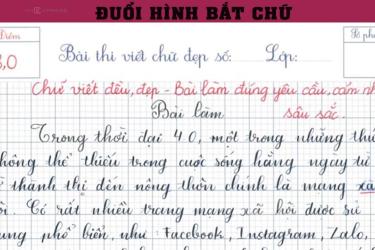 ĐUỔI HÌNH BẮT CHỮ
Điểm
Bài thi viết chữ đẹp số: Lớp:
8,0
Chữ viết đều, đẹp - Bài làm đúng yêu cầu, cảm nh
Bài làm sâu sắc.
Trong thời đại 4.0, một trong những thứ
không thể thiếu trong cuộc sống hằng ngay từ
thành thị đến nông thôn chính là mạng xã
Có rất nhiều trang mạng xã hội được sử
phổ biến, như: Facebook, Instagram, Zalo,